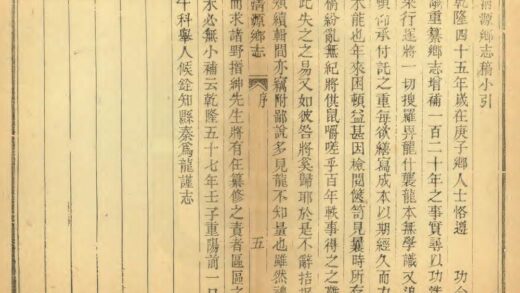 清源鄉志稿小引
乾隆四十五年歲在庚子鄉人士恪遵
議重纂鄉志增補一百二十年之事實尋以功
來行遂將一切搜羅畀龍什襲龍本無學識又
傾仰承付託之重每欲繕寫成本以期經久而力
未能也年來困頓益甚因檢閱篋笥見曩時所存
稿紛亂無紀將供鼠嚼嗟乎百年軼事得之之難
此失之之易又如彼咎將奚歸耶於是不辭拮
類續輯間亦竊附鄙說多見龍不知量也雖然
清源鄉志
序
五
而求諸野搢紳先生將有任纂修之責者區區之
未必無小補云乾隆五十七年壬子重陽前一日
午科舉人候銓知縣秦為龍謹志